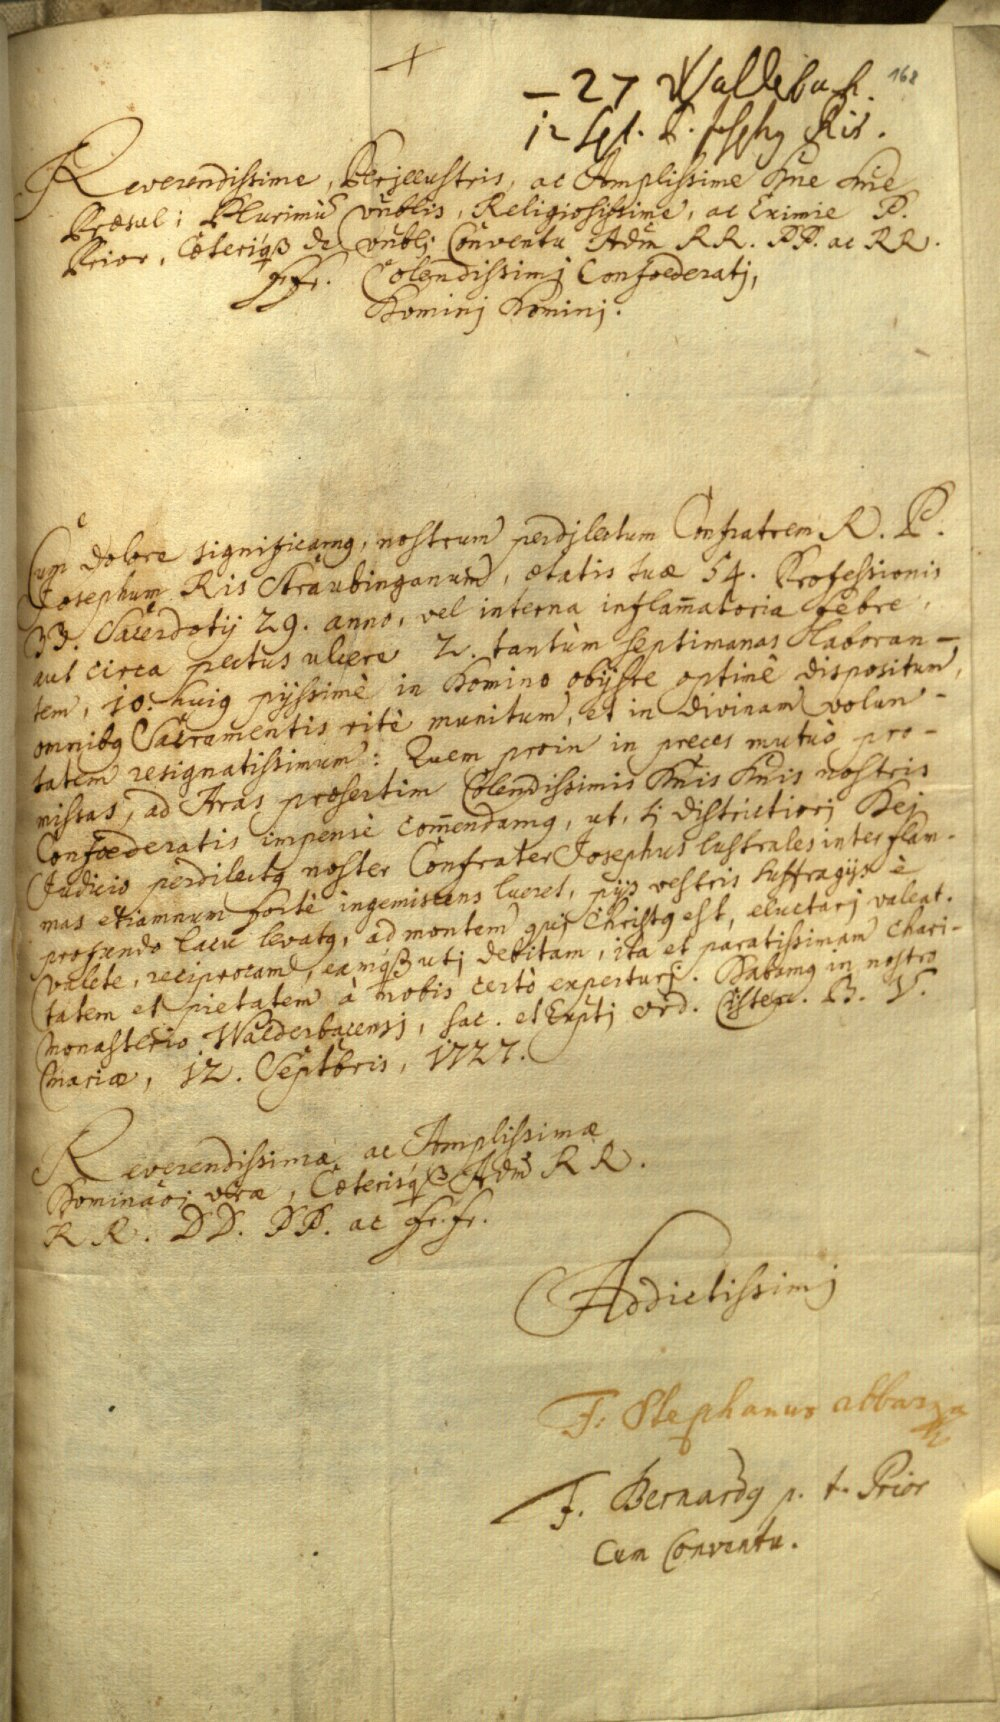 168
– 27 Wallebach.
12 Sept. P. Joseph9 Ris.
Reverendissime, Perillustris, ac Amplissime Dne Dne
Præsul; Plurimũ Vnblis, Religiosissime, ac Eximie P.
Prior, Cæteriq3 de vnblj Conventu Adm̃ RR. PP. ac RR.
Fr.Fr. Colendissimj Confoederatj,
Dominj Dominj.
Cum dolore significam9, nostrum perdilectum Confratrem R. P.
Josephum Ris Straubinganum, ætatis suæ 54. Professionis
33. Sacerdotij 29. anno, vel interna inflam̃atoria febre,
aut circa pectus ulcere 2. tantùm septimanas laboran-
tem, 10. hui9 pijssimè in Domino obijsse optimè dispositum,
omnib9 Sacramentis ritè munitum, et in Divinam volun-
tatem resignatissimum: Quem proin in preces mutuò pro-
missas, ad Aras præsertim Colendissimis Dnis Dnis nostris
Confoederatis impensè com̃endam9, ut, si districtiorj Dej
Judicio perdilect9 noster Confrater Josephus lustrales inter flam-
mas etiamnum fortè ingemiscens lueret, pijs vestris suffragijs è
profundo lacu levat9, ad montem qui Christ9 est, eluctarj valeat.
Valete, reciprocam, eamq3 utj debitam, ita et paratissimam chari-
tatem et pietatem à nobis certò experturj. Dabam9 in nostro
Monasterio Walderbacensj, sac. et Exptj ord. Cisterc. B. V.
Mariæ, 12. Septbris, 1727.
Reverendissimæ ac Amplissimæ
Dominãoj vr̃æ, Cæterisq3 Adm̃ RR.
RR. DD. PP. ac Fr.Fr.
Addictissimj
F. Stephanus abbas
F. Bernard9 p. t. Prior
Cum Conventu.